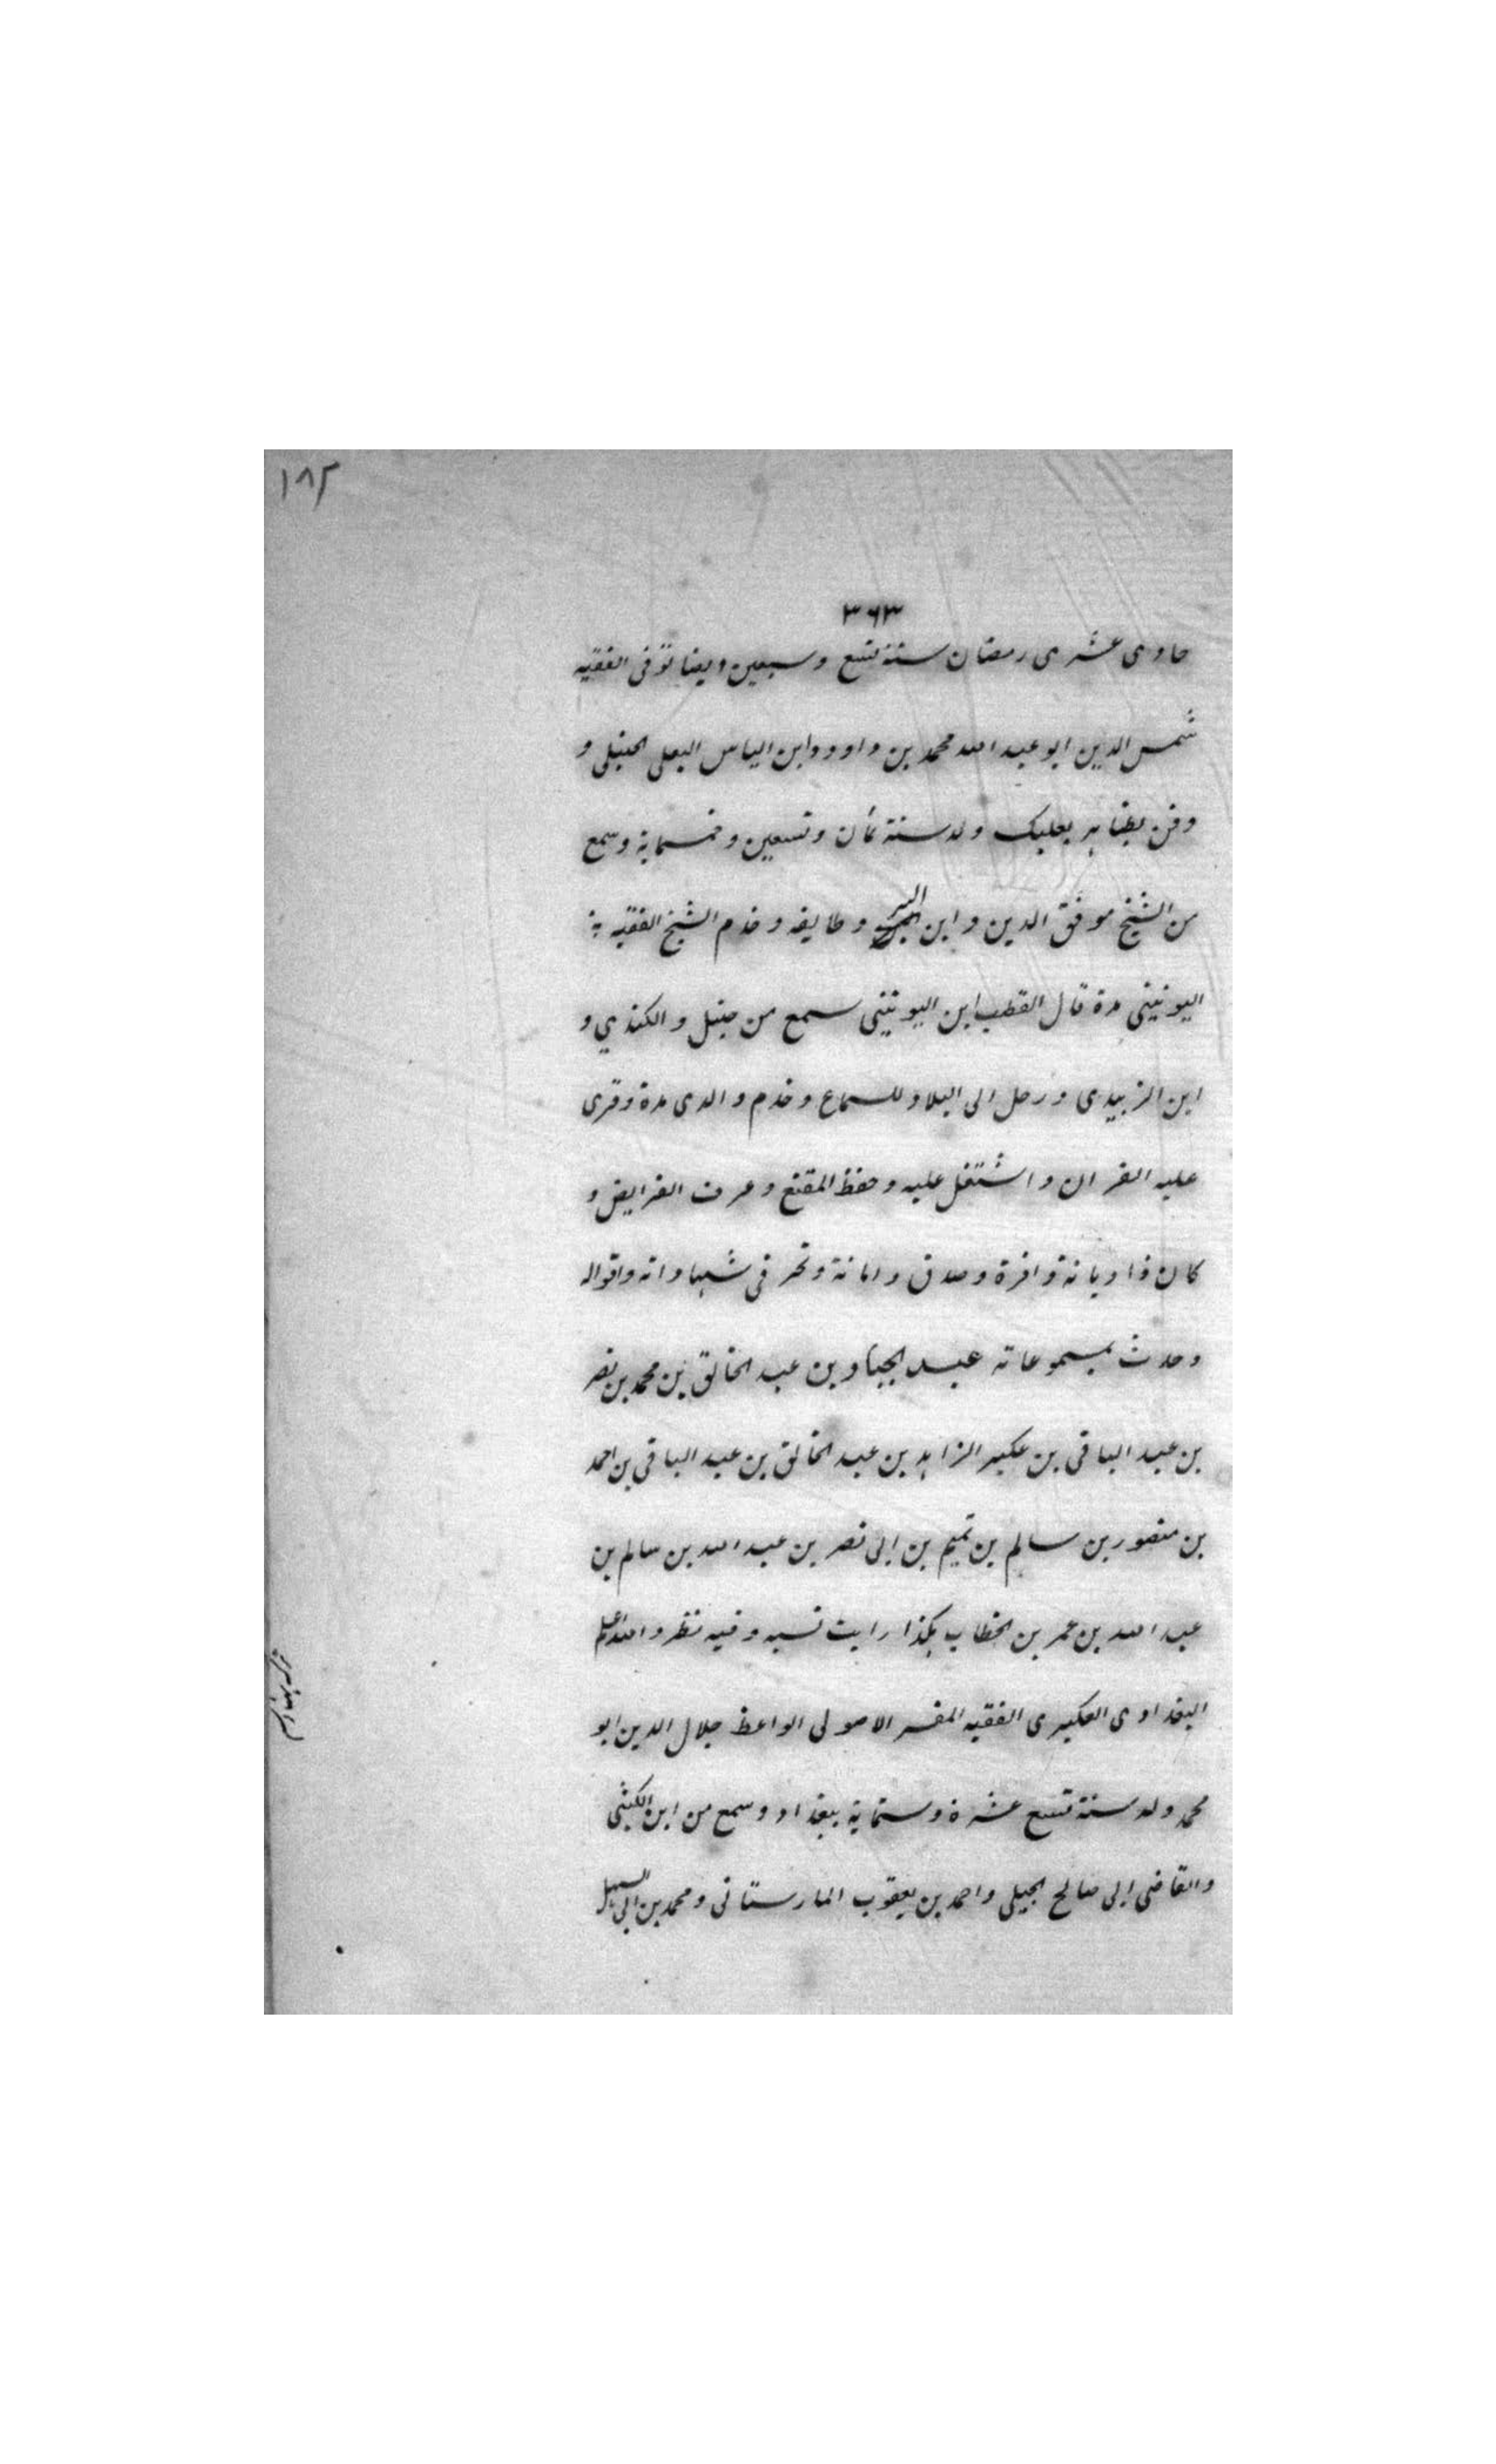 ١٨٢
٣٦٣
حادى عشرى رمضان سنة تسع وسبعين وايضا توفى الفقيه
شمس الدين ابو عبد الله محمد بن داود وابن الياس البعلى الحنبلى و
دفن بظاهر بعلبك ولد سنة ثمان وتسعين وخمسماية وسمع
من الشيخ موفق الدين وابن البن وطايفه وخدم الشيخ الفقيه
اليونينى مدة قال القطب ابن اليونينى سمع من حنبل والكندي و
ابن الزبيدى ورحل الى البلاد للسماع وخدم والدى مدة وقرى
عليه القران واشتغل عليه وحفظ المقنع وعرف الفرايض و
كان ذا ديانة وافرة وصدق وامانة وتحر فى شهاداته واقواله
وحدث بمسموعاته عبد الجبار بن عبد الخالق بن محمد بن نصر
بن عبد الباقى بن عكبر الزاهد بن عبد الخالق بن عبد الباقى بن احمد
بن منصور بن سالم بن تميم بن ابى نصر بن عبد الله بن سالم بن
عبد الله بن عمر بن الخطاب هكذا رايت نسبه وفيه نظر والله اعلم
البغدادى العكبرى الفقيه المفسر الاصولى الواعظ جلال الدين ابو
محمد ولد سنة تسع عشرة وستماية ببغداد وسمع من ابن الكتبى
والقاضى ابى صالح الجيلى واحمد بن يعقوب المارستانى ومحمد بن ابى السهل